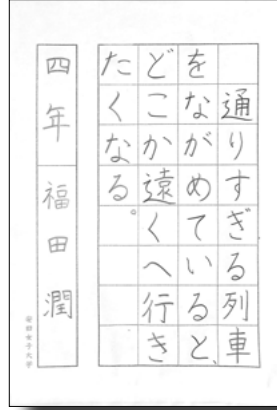 通りすぎる列車
をながめていると、
どこか遠くへ行き
たくなる。
四年 福田潤
安田女子大学